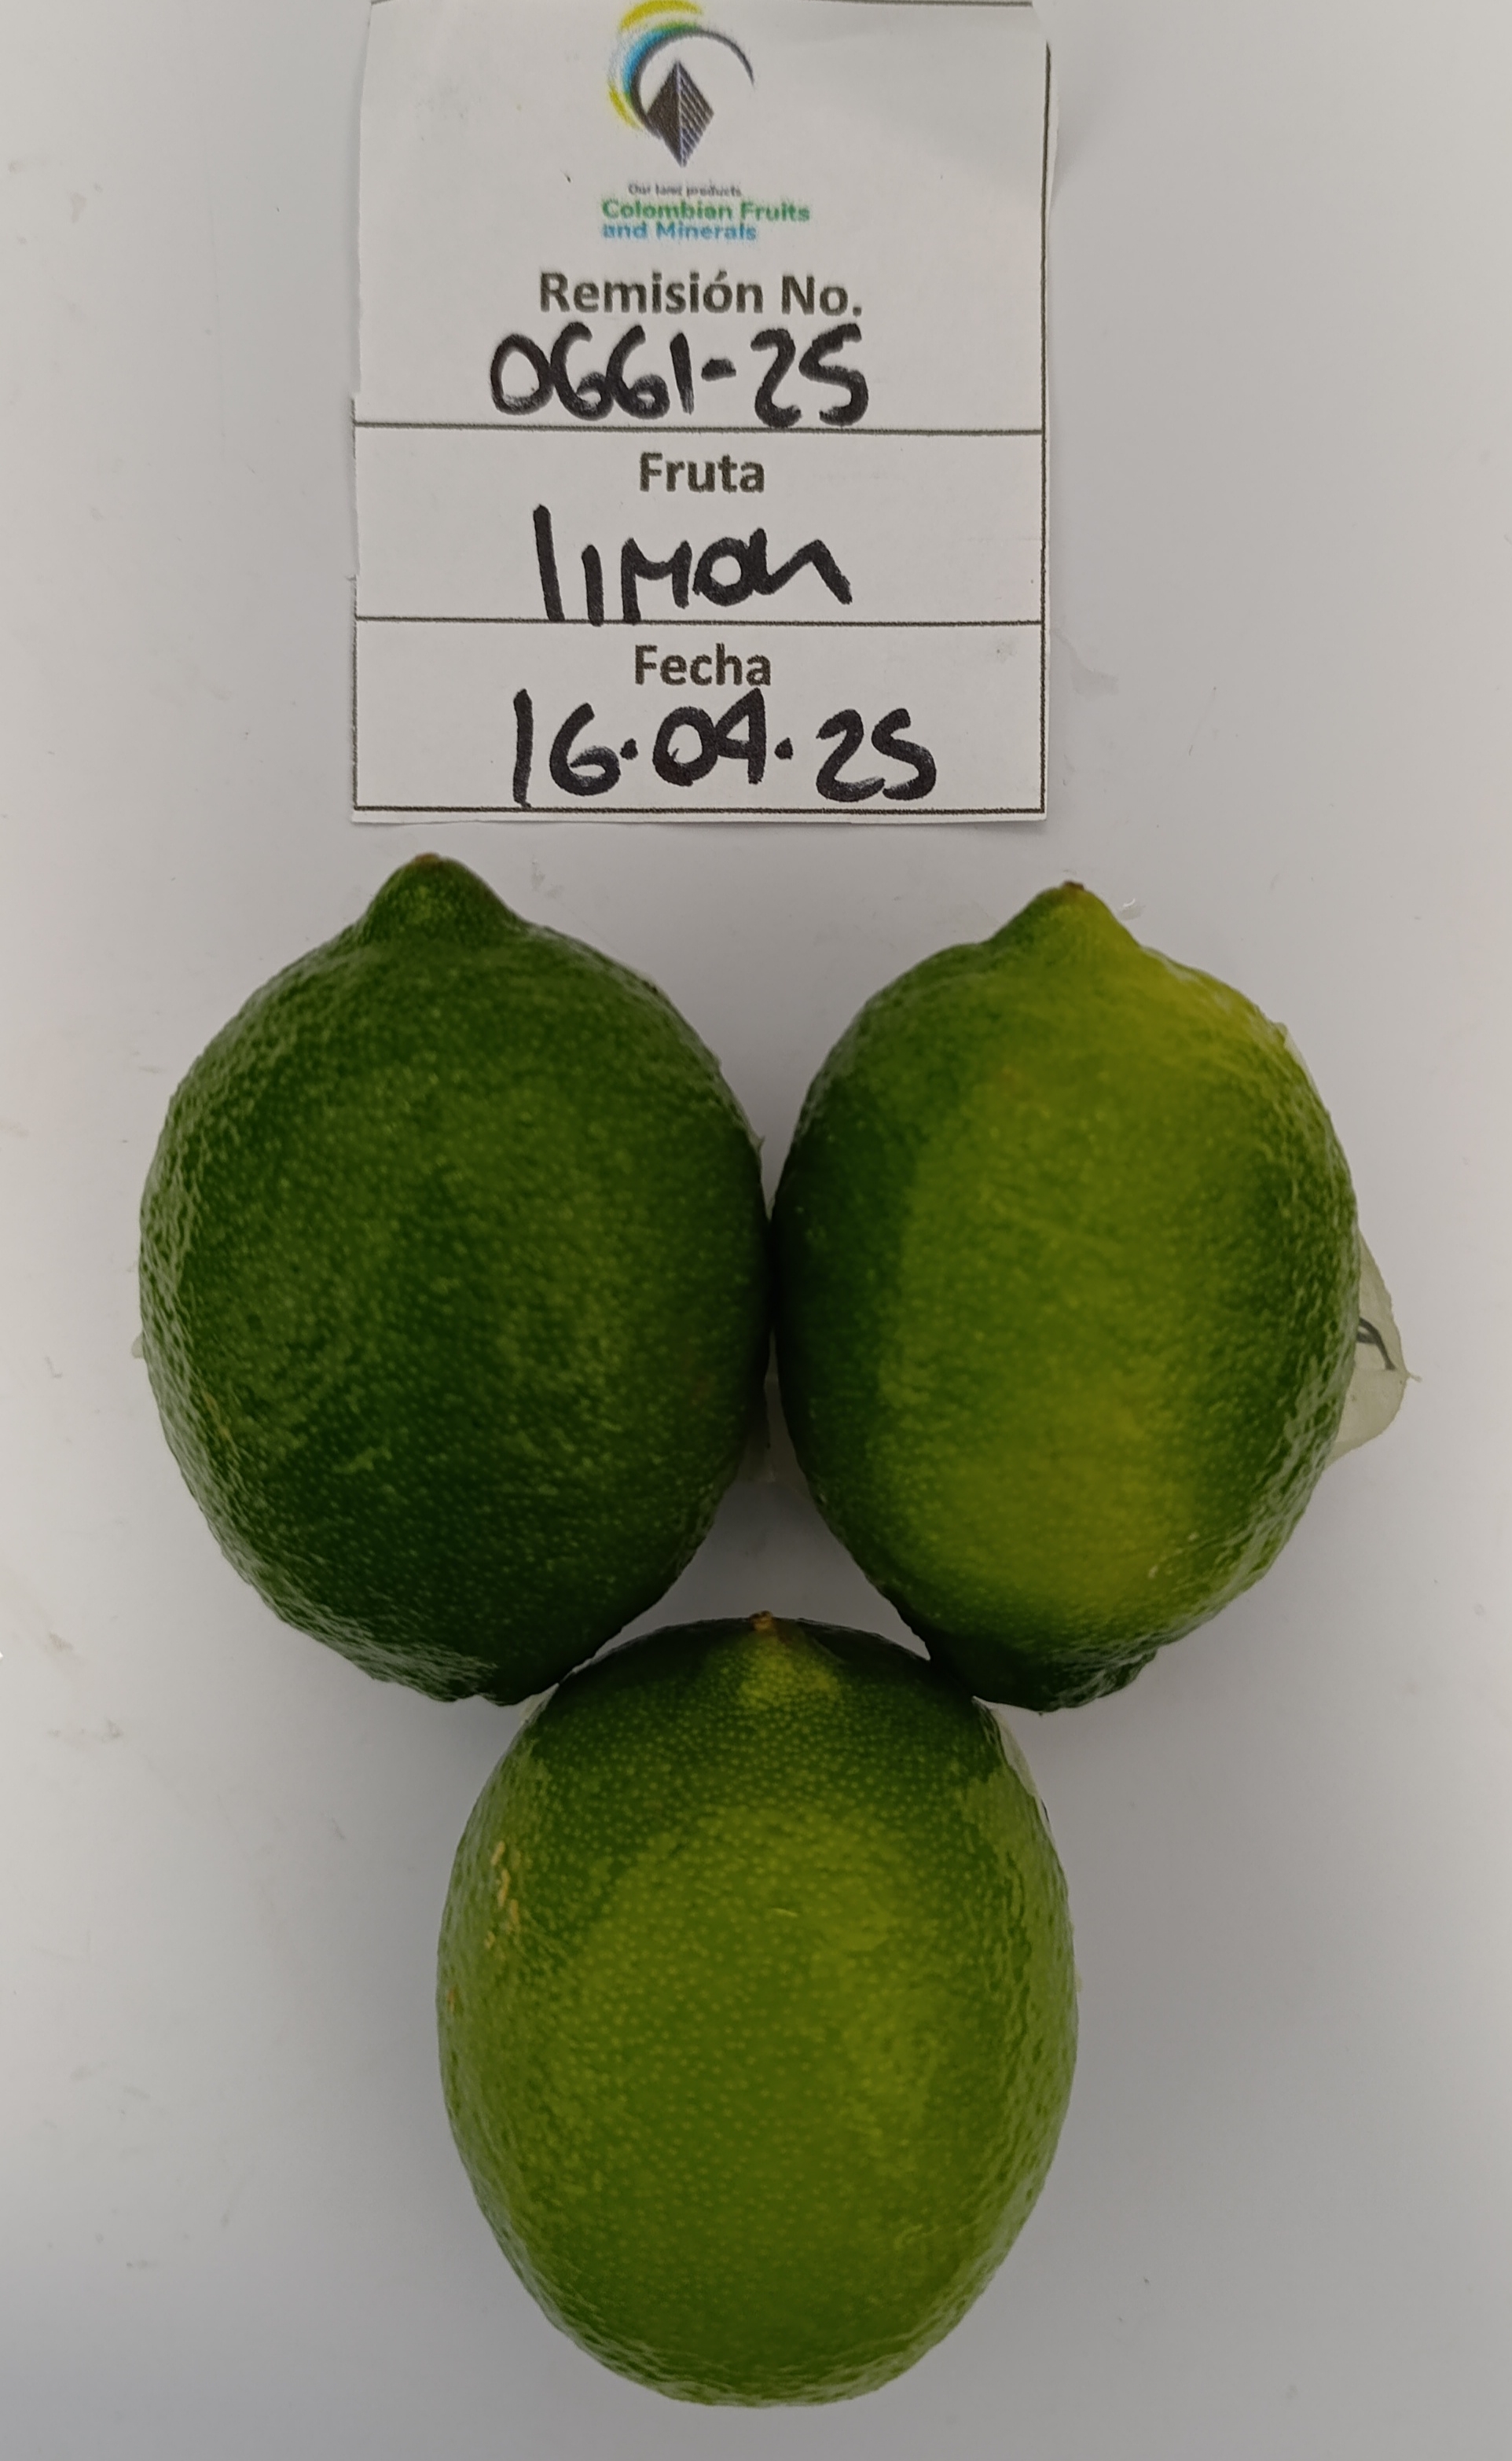 Our land products
Colombian Fruits
and Minerals
Remisión No.
0661-25
Fruta
limon
Fecha
16.04.25